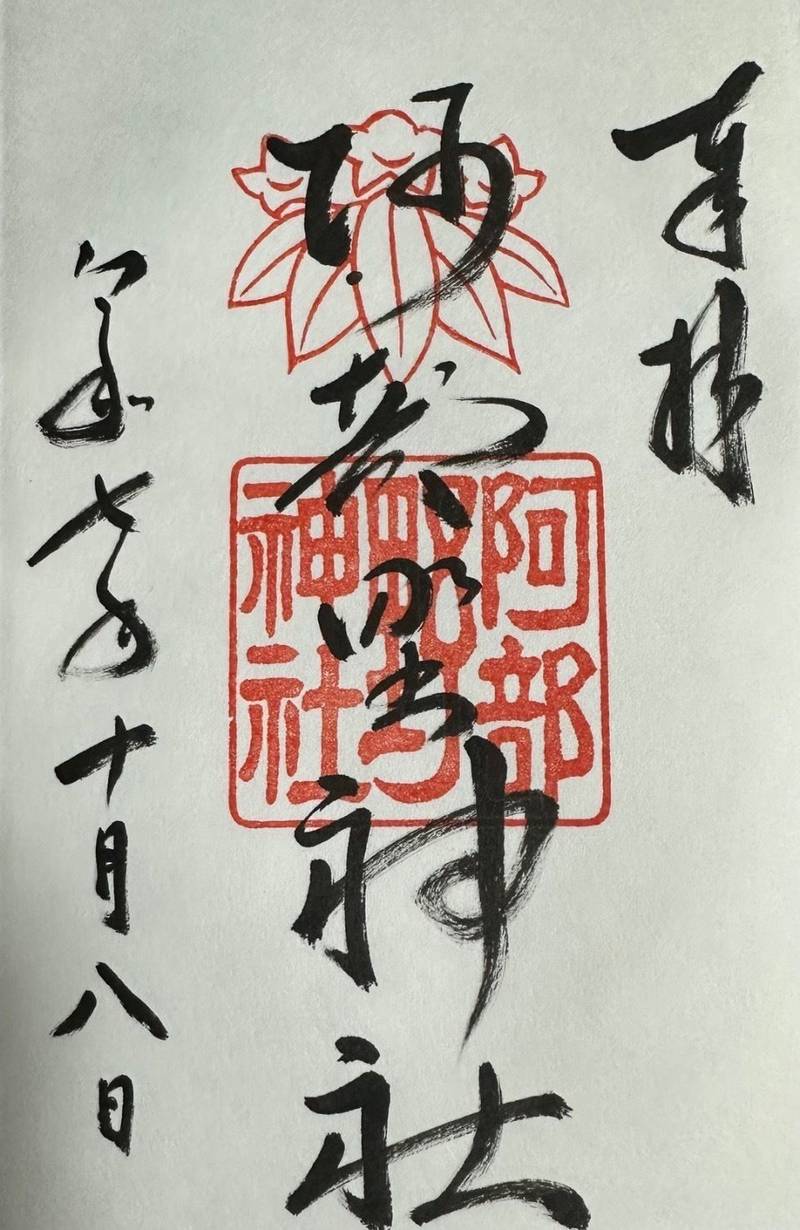 奉拝
阿部野神社
阿部野神社
令和七年十月八日